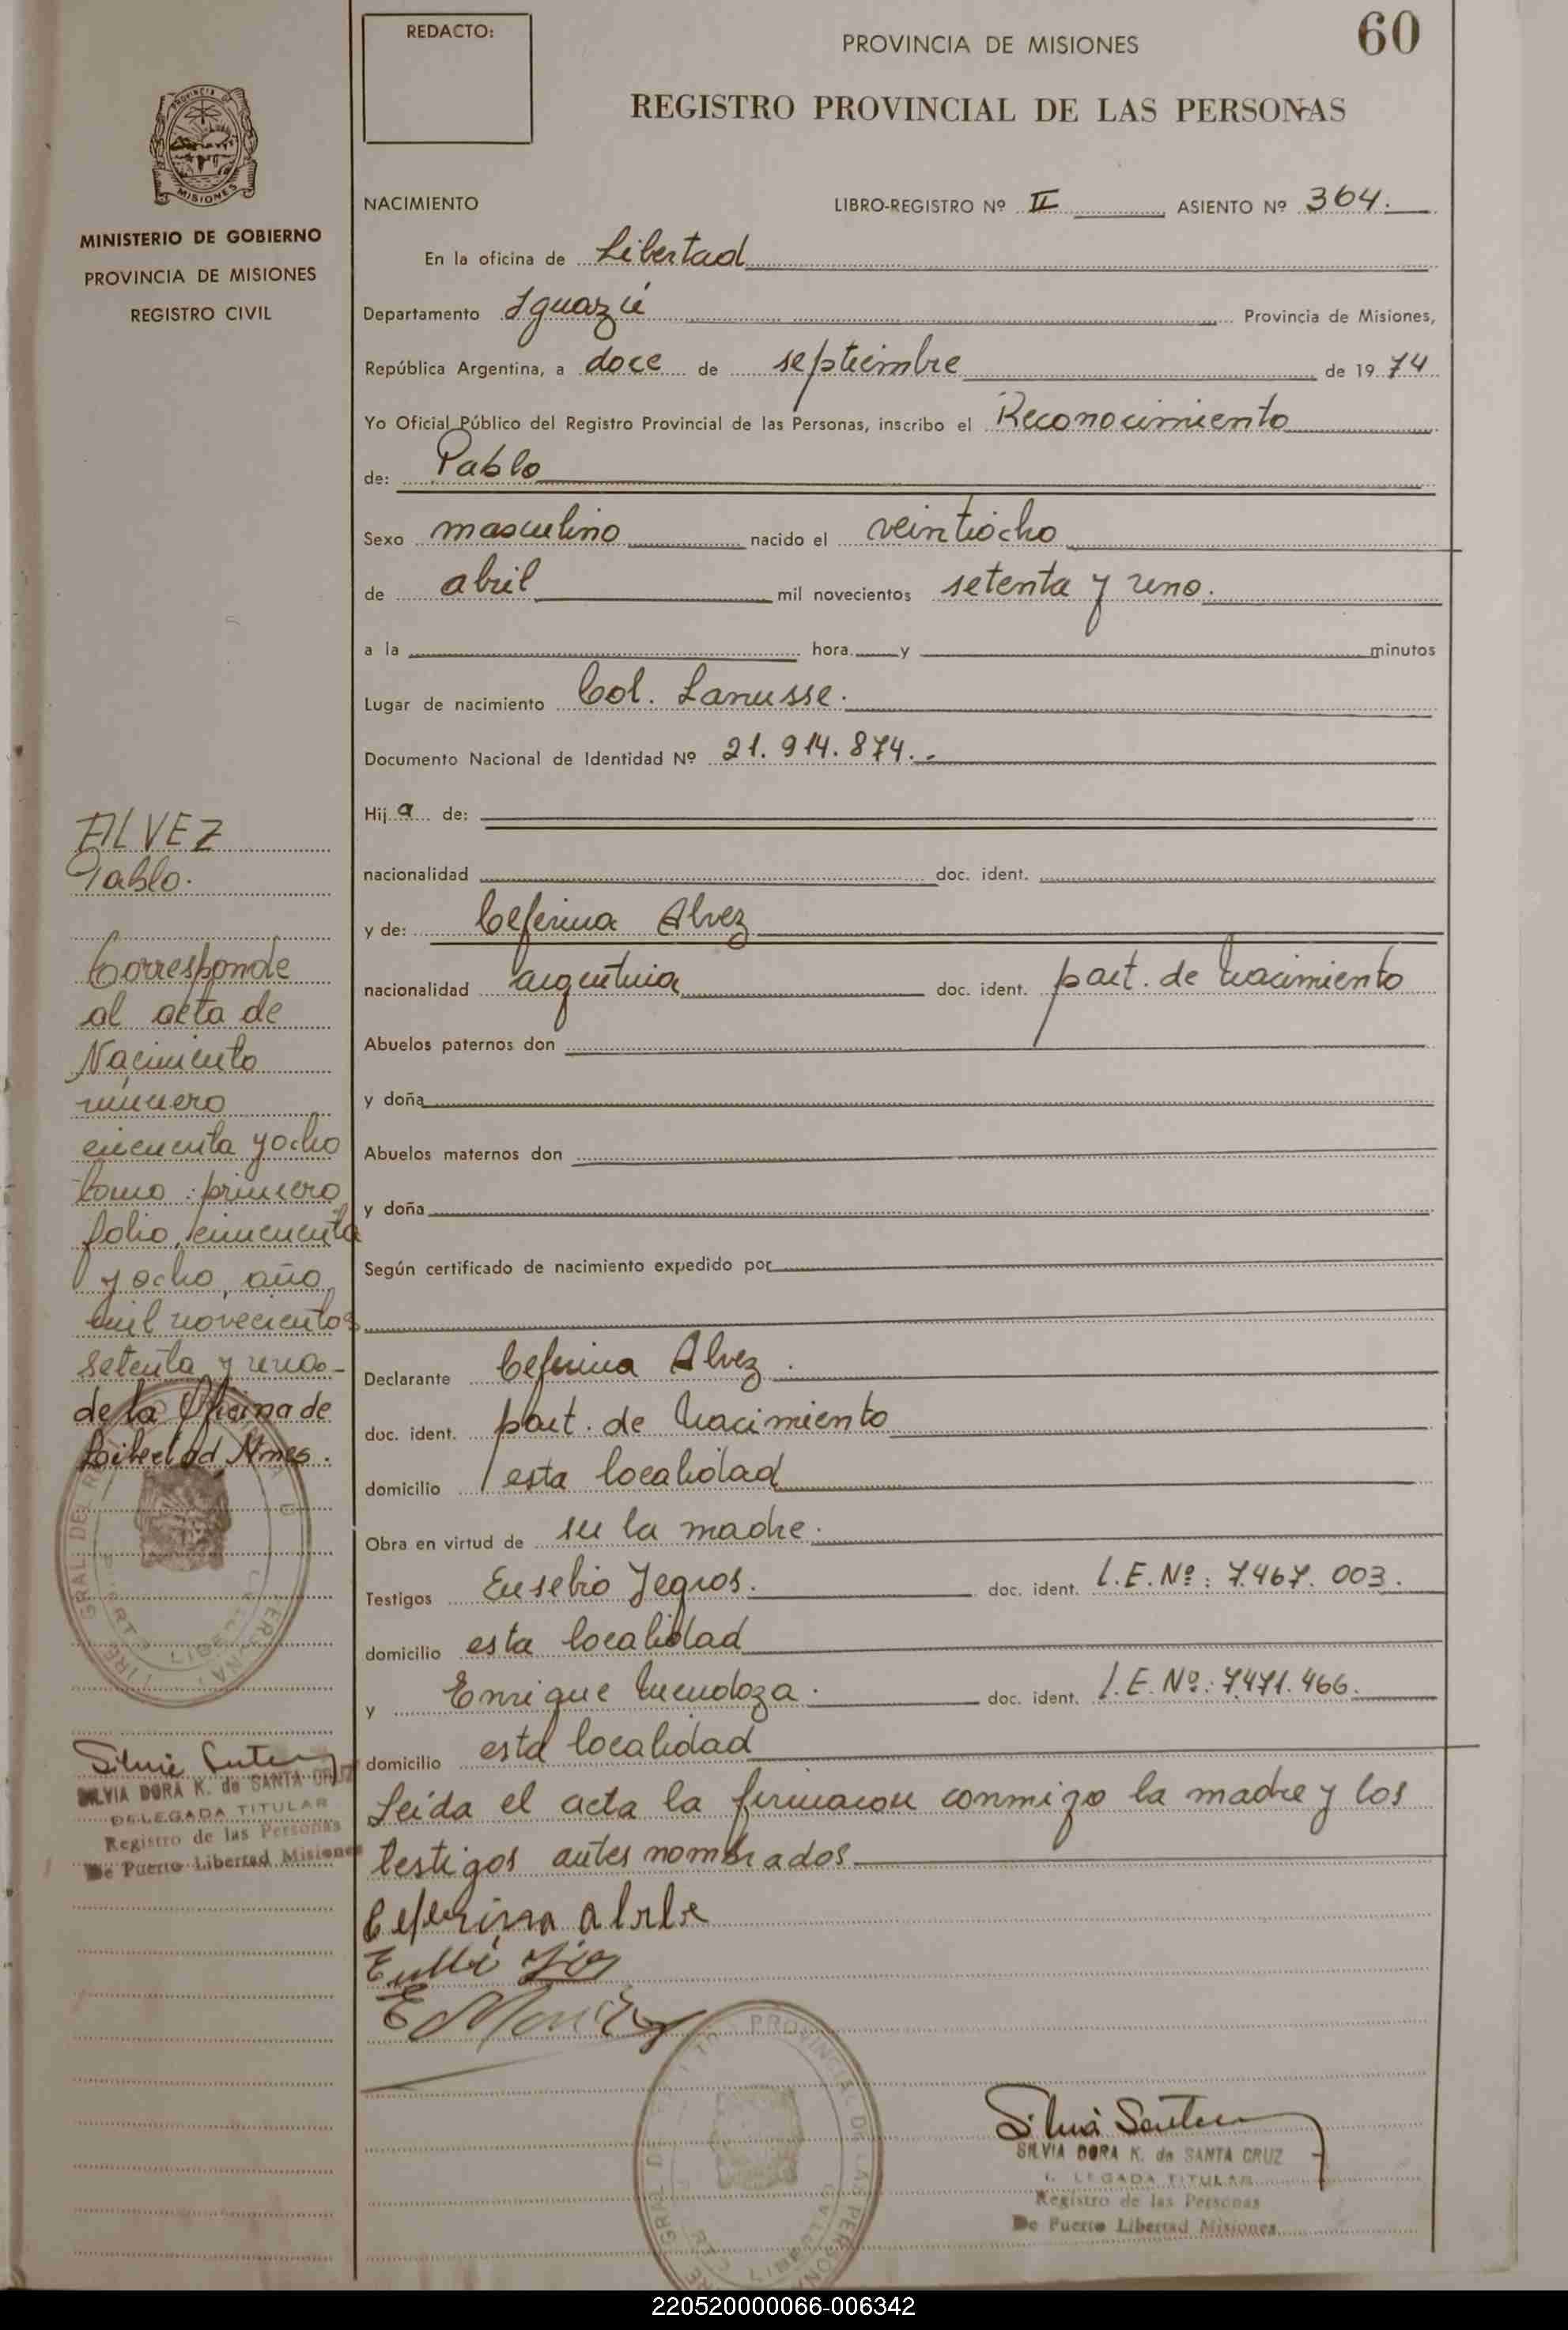 REDACTO:
PROVINCIA DE MISIONES
60
REGISTRO PROVINCIAL DE LAS PERSONAS
MISIONES
MINISTERIO DE GOBIERNO
PROVINCIA DE MISIONES
REGISTRO CIVIL
NACIMIENTO LIBRO-REGISTRO Nº II ASIENTO Nº 364.
En la oficina de Libertad
Departamento Iguazú Provincia de Misiones,
República Argentina, a doce de septiembre de 1974
Yo Oficial Público del Registro Provincial de las Personas, inscribo el Reconocimiento
de: Pablo
Sexo masculino nacido el veintiocho
de abril mil novecientos setenta y uno.
a la hora y minutos
Lugar de nacimiento Col. Lanusse.
Documento Nacional de Identidad Nº 21.914.874.-
Hij a de:
nacionalidad doc. ident.
y de: Ceferina Alvez
nacionalidad argentina doc. ident. part. de Nacimiento
Abuelos paternos don
y doña
Abuelos maternos don
y doña
Según certificado de nacimiento expedido por
Declarante Ceferina Alvez.
doc. ident. part. de Nacimiento
domicilio esta localidad
Obra en virtud de su la madre.
Testigos Eusebio Yegros. doc. ident. L.E.Nº: 7.467.003.
domicilio esta localidad
y Enrique Mendoza. doc. ident. L.E.Nº: 7.471.466.
domicilio esta localidad
Leída el acta la firmaron conmigo la madre y los
testigos antes nombrados
Ceferina
ALVEZ
Pablo.
Corresponde
al acta de
Nacimiento
número
cincuenta y ocho
tomo: primero
folio, cincuenta
y ocho, año
mil novecientos
setenta y uno-
de la Oficina de
Libertad, Mnes.
SILVIA DORA K. de SANTA CRUZ
DELEGADA TITULAR
Registro de las Personas
De Puerto Libertad Misiones
PROVINCIAL DE LAS PERSONAS
SILVIA DORA K. de SANTA CRUZ
LEGADA TITULAR
Registro de las Personas
De Puerto Libertad Misiones
220520000066-006342